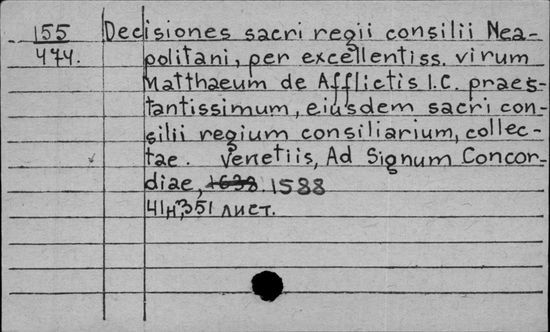 155 Decisiones sacri regii consilii Nea-
474. politani, per excellentiss. virum
Matthaeum de Afflictis I.C. praes-
tantissimum, eiusdem sacri con-
silii regium consiliarium, collec-
tae. Venetiis, Ad Signum Concor-
diae, 1638 1588
41н, 351 лист.